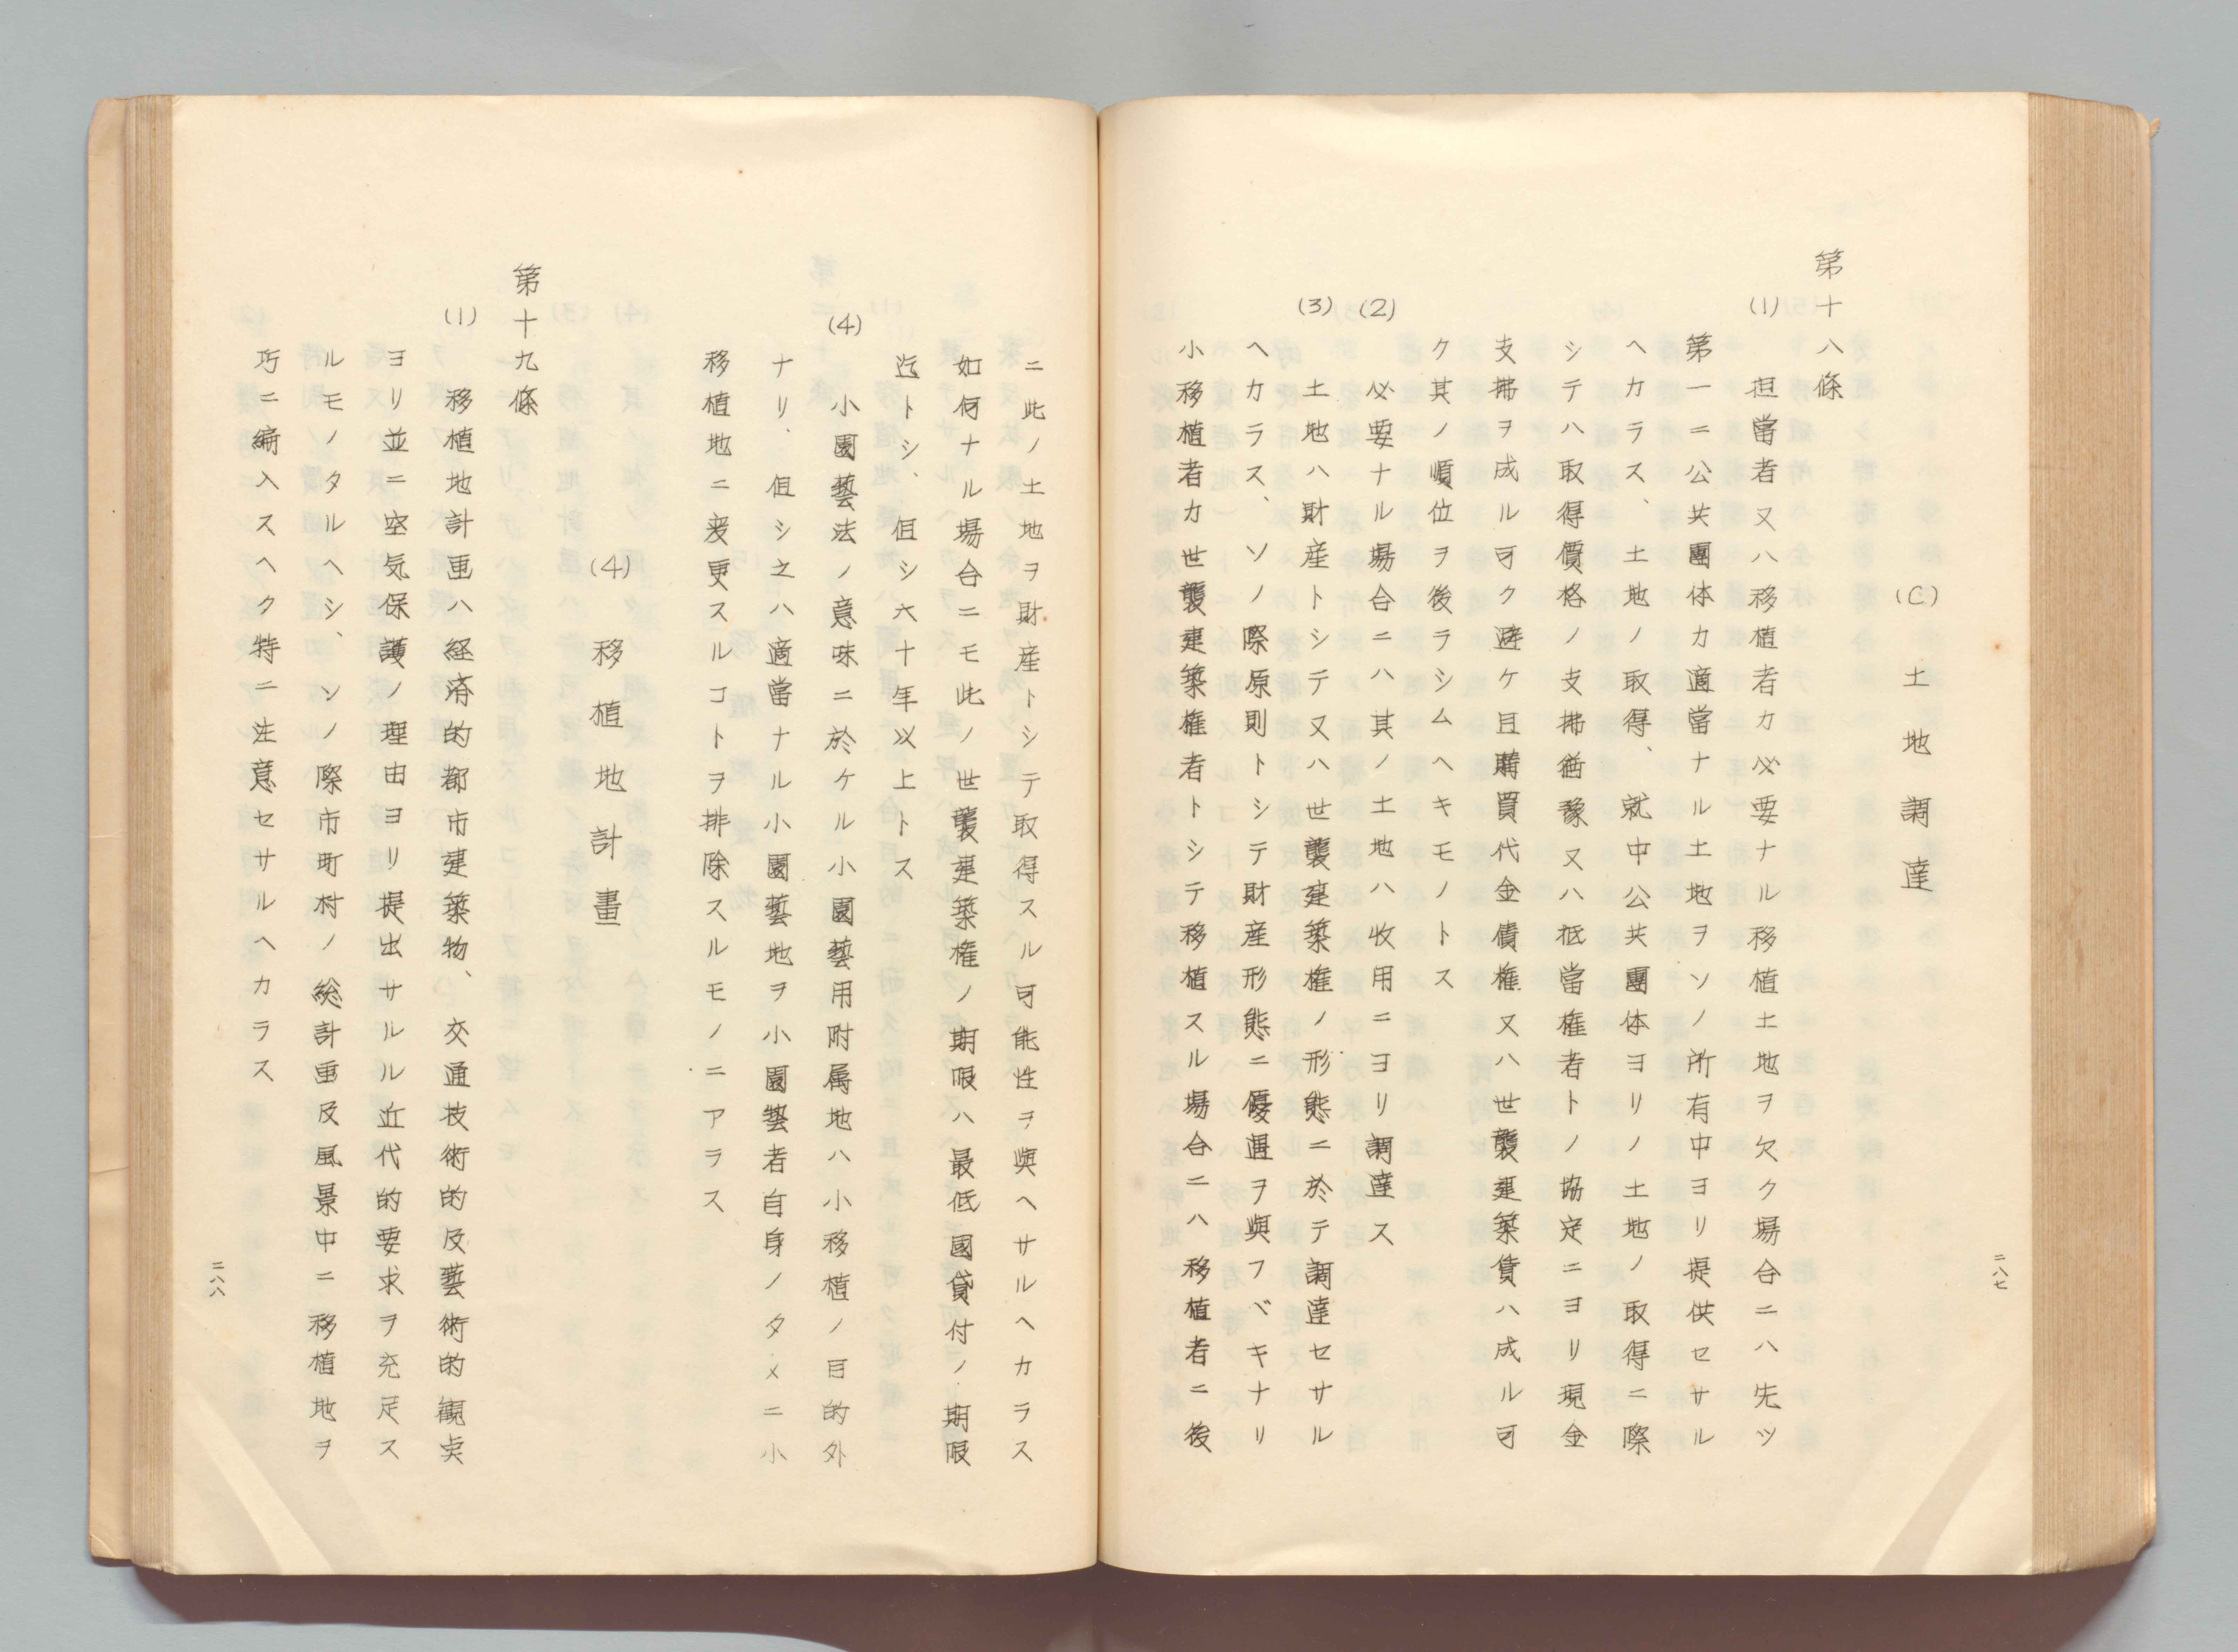 (C) 土地調達
第十八條
(1) 担當者又ハ移植者カ必要ナル移植土地ヲ欠ク場合ニハ先ツ
第一ニ公共團体カ適當ナル土地ヲソノ所有中ヨリ提供セサル
ヘカラス、土地ノ取得、就中公共團体ヨリノ土地ノ取得ニ際
シテハ取得價格ノ支拂猶豫又ハ抵當権者トノ協定ニヨリ現金
支拂ヲ成ル可ク避ケ且購買代金債権又ハ世襲建築賃ハ成ル可
ク其ノ順位ヲ後ラシムヘキモノトス
(2) 必要ナル場合ニハ其ノ土地ハ收用ニヨリ調達ス
(3) 土地ハ財産トシテ又ハ世襲建築権ノ形態ニ於テ調達セサル
ヘカラス、ソノ際原則トシテ財産形態ニ優遇ヲ與フベキナリ
小移植者カ世襲建築権者トシテ移植スル場合ニハ移植者ニ後
二八七
ニ此ノ土地ヲ財産トシテ取得スル可能性ヲ與ヘサルヘカラス
如何ナル場合ニモ此ノ世襲建築権ノ期限ハ最低國貸付ノ期限
迄トシ、但シ六十年以上トス
(4) 小園藝法ノ意味ニ於ケル小園藝用附属地ハ小移植ノ目的外
ナリ、但シ之ハ適當ナル小園藝地ヲ小園藝者自身ノタメニ小
移植地ニ変更スルコトヲ排除スルモノニアラス
(4) 移植地計畫
第十九條
(1) 移植地計画ハ経済的都市建築物、交通技術的及藝術的観点
ヨリ並ニ空気保護ノ理由ヨリ提出サルル近代的要求ヲ充足ス
ルモノタルヘシ、ソノ際市町村ノ総計画及風景中ニ移植地ヲ
巧ニ編入スヘク特ニ注意セサルヘカラス
二八八